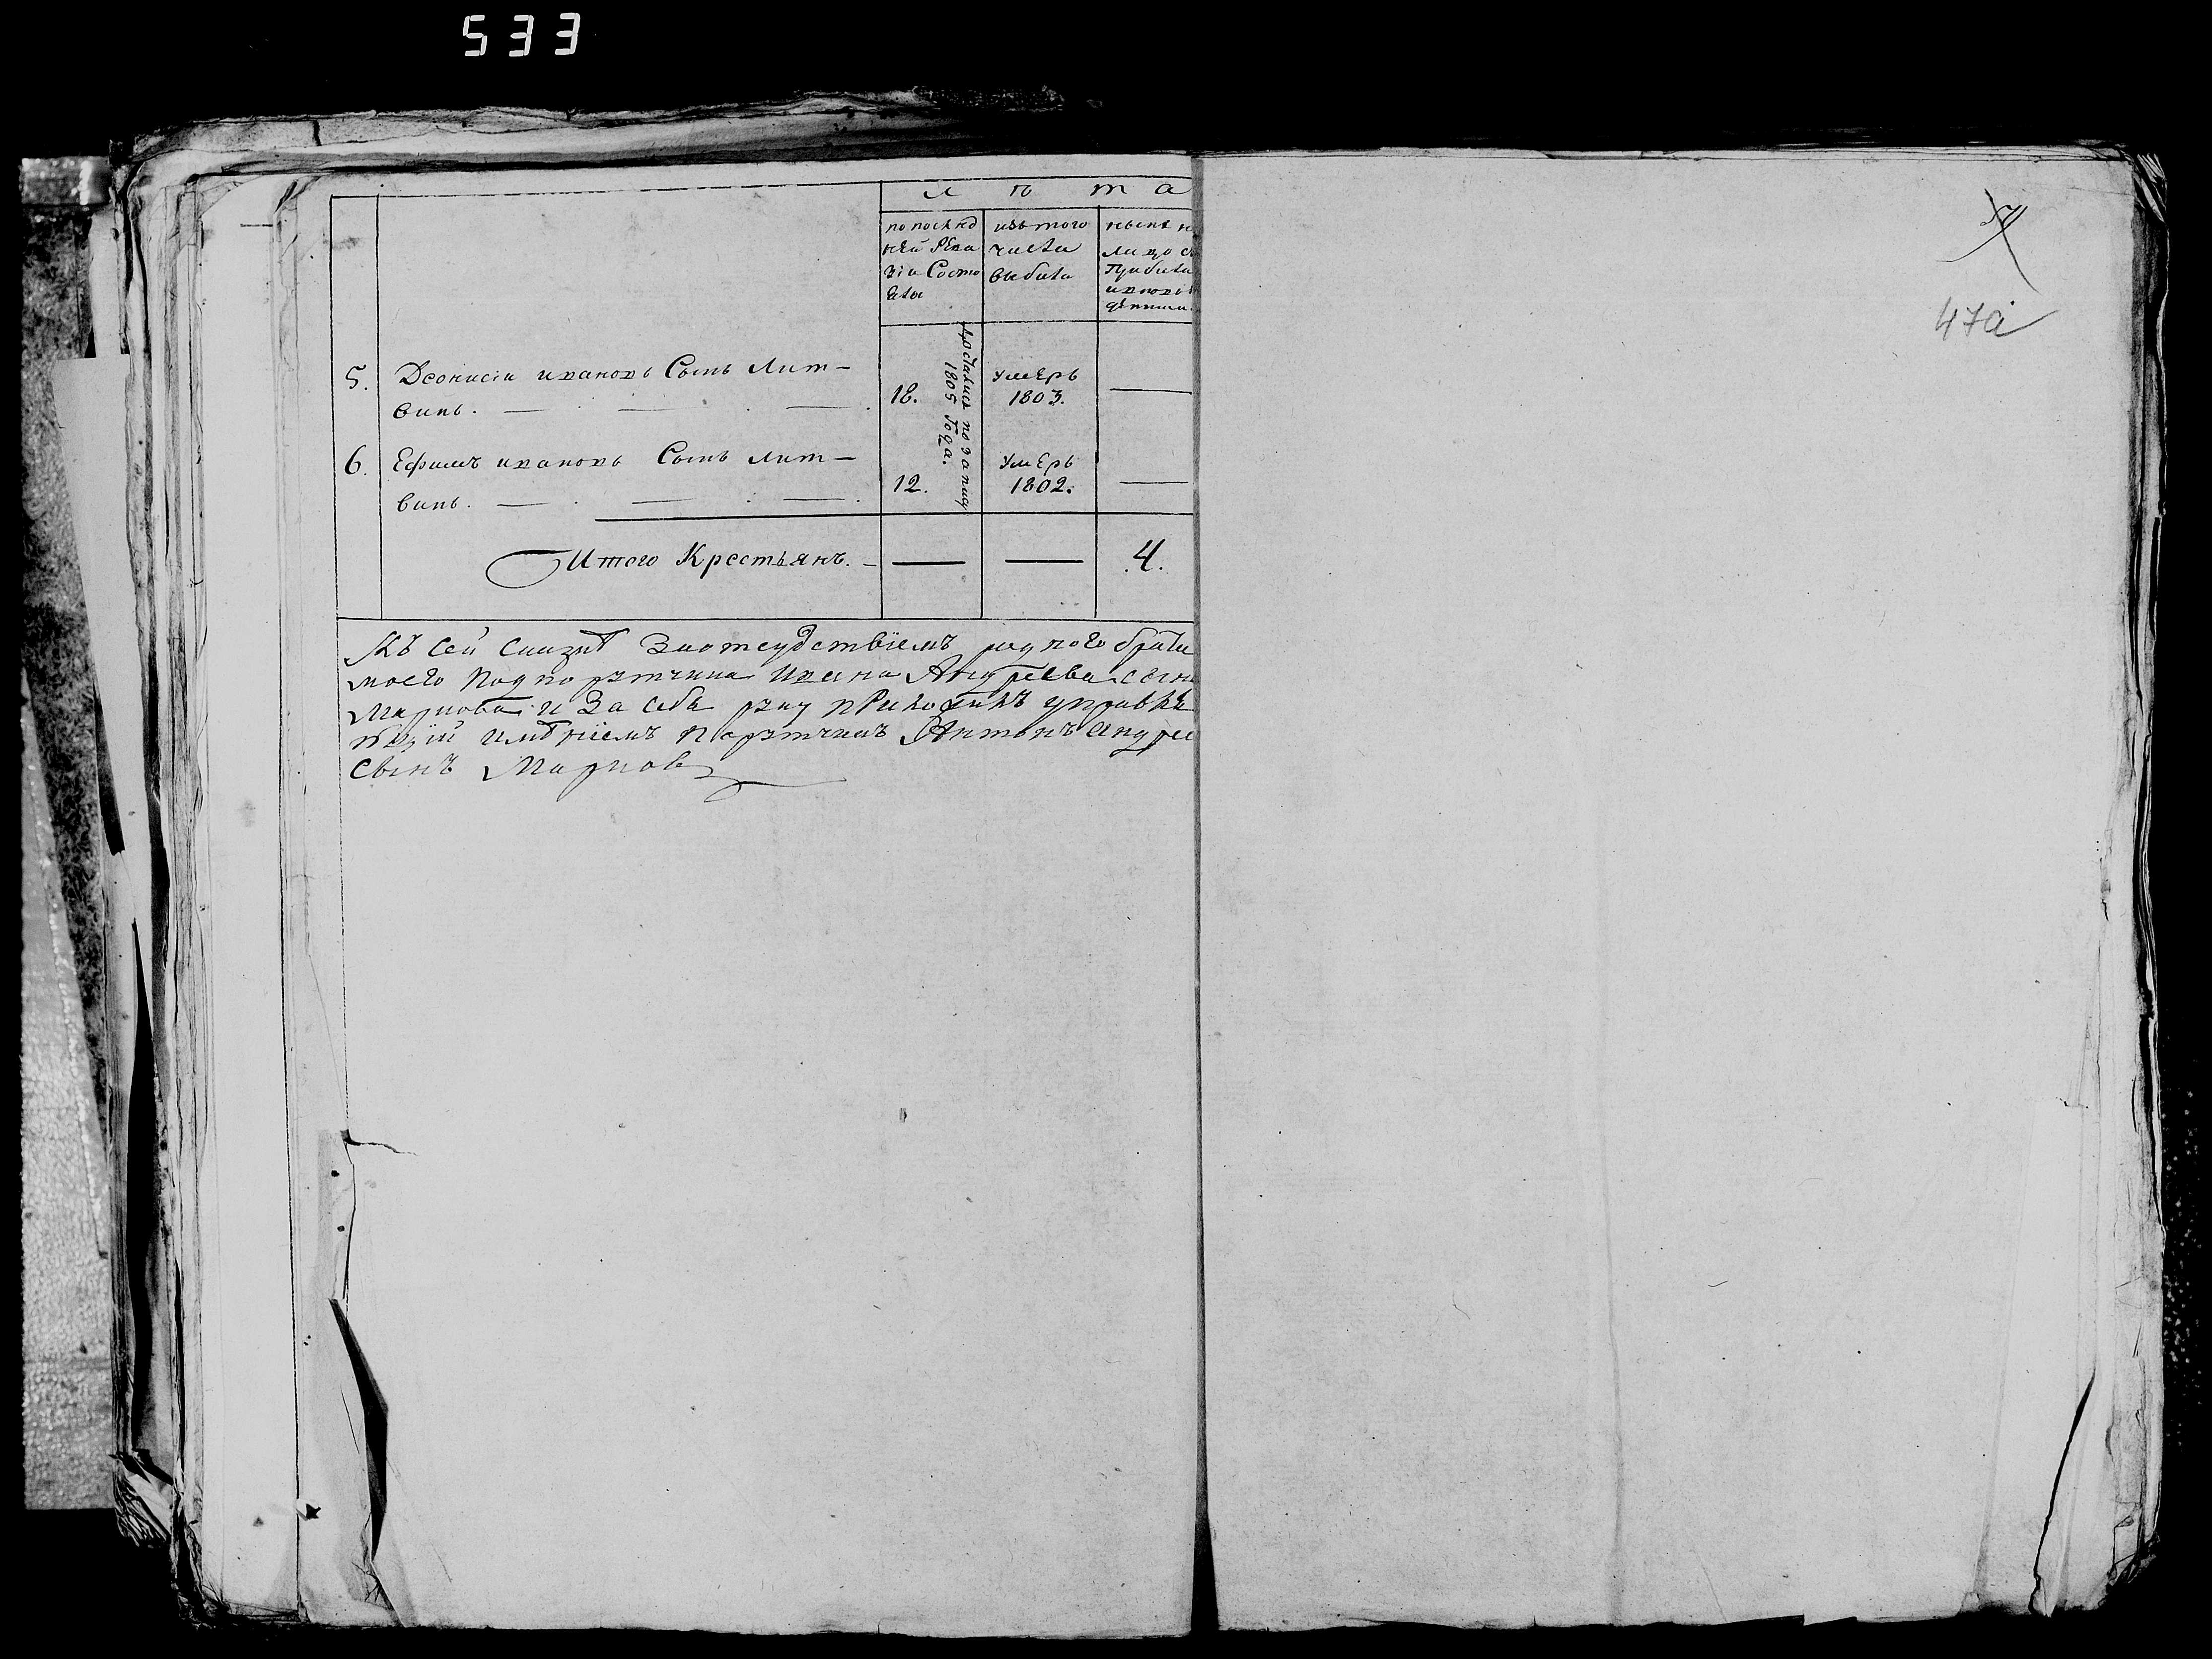 533
лѣта
по послѣд
ней Реви
зіи Состо
яли
изъ того
числа
выбыли
нынѣ н
лицо съ
Прибыли
и новоро
5. Деонисіи ивановъ Сынъ Лит-
винъ.
18.
умерь
1803.
6. Ефимъ ивановъ Сынъ Лит-
винъ.
12.
умерь
1802.
1805 года.
Итого Крестьянъ.
4.
Къ сей Сказкѣ За отсудствіемъ родного брата
моего Подпорутчика Ивана Андреева сына
Маркова и За себя руку приложилъ управля
имѣніемъ Порутчикъ Антонъ Андрее
сынъ Марков
47а